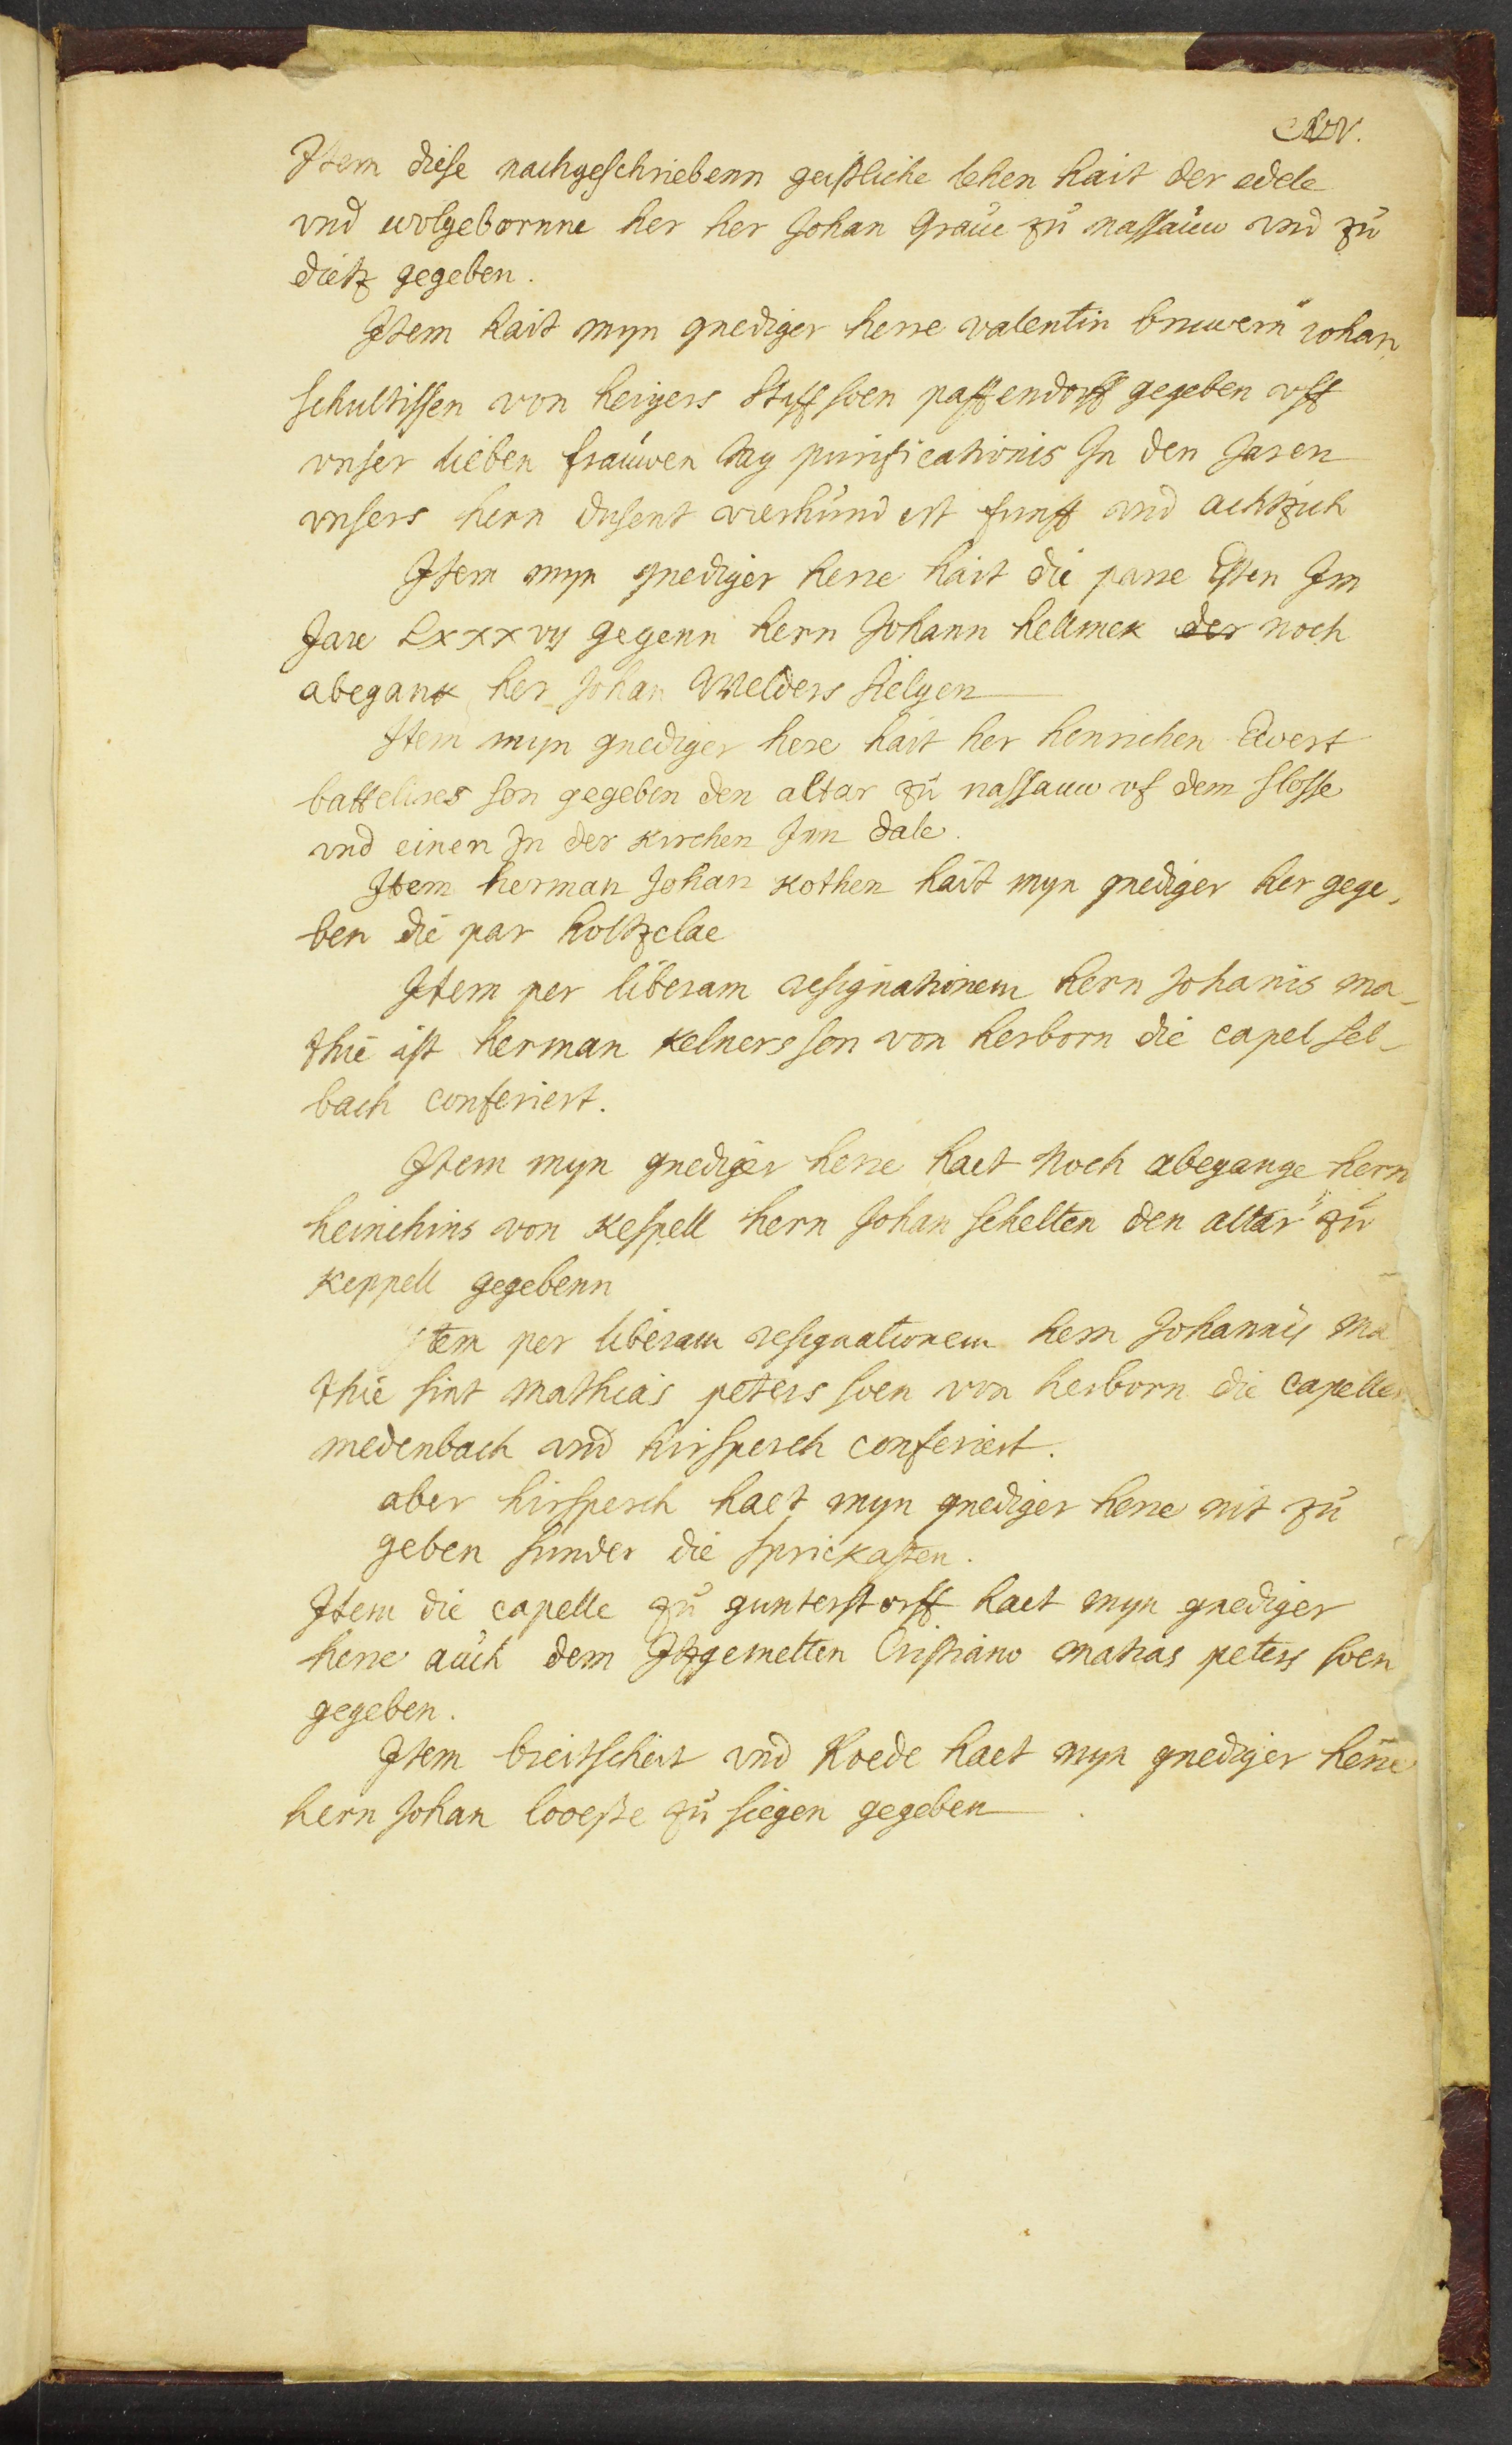 Item diese nachgeschriebenn geistliche lehen hait der edele
vnd wolgebornne her her Johan Graue zů nassauw vnd zů
dietz gegeben.
Item hait myn gnediger herre valentin bruwern Johan
schultissen von heigers Stiffsoen paffendorff gegeben vff
vnser lieben frauwen tag purificationis In den Jaren
vnsers hern dusent vierhundert funff vnd achtzich
Item myn gnediger herre hait die parre Esten Im
Jare Lxxxvij gegenn hern Johann hellmek der noch
abegank her Johan Welders selgen
Item myn gnediger here hait her henrichen Ewert
battelires son gegeben den altar zů nassauw vf dem slosse
vnd einen In der kirchen Im dale.
Item herman Johan kothen hait myn gnediger her gege,
ben die par holtzclae
Item per liberam resignationem hern Johanis ma-
thie ist herman kelners son von herborn die capel sel-
bach conferiert.
Item myn gnediger herre haet noch abegange hern
heinchins von keppell hern Johan schelten den altar zů
keppell gegebenn
Item per liberam resignationem hern Johannis Ma
thie sint Mathias peters soen von herborn die capellen
medenbach vnd hirsperch conferiert.
aber hirsperch haet myn gnediger herre nit zů
geben sunder die sprickasten.
Item die capelle zů gunterstorff haet myn gnediger
herre auch dem Itzgemelten Cristiano matias peters soen
gegeben.
Item breitschert vnd Roede haet myn gnediger herre
hern Johan looeße zů siegen gegeben